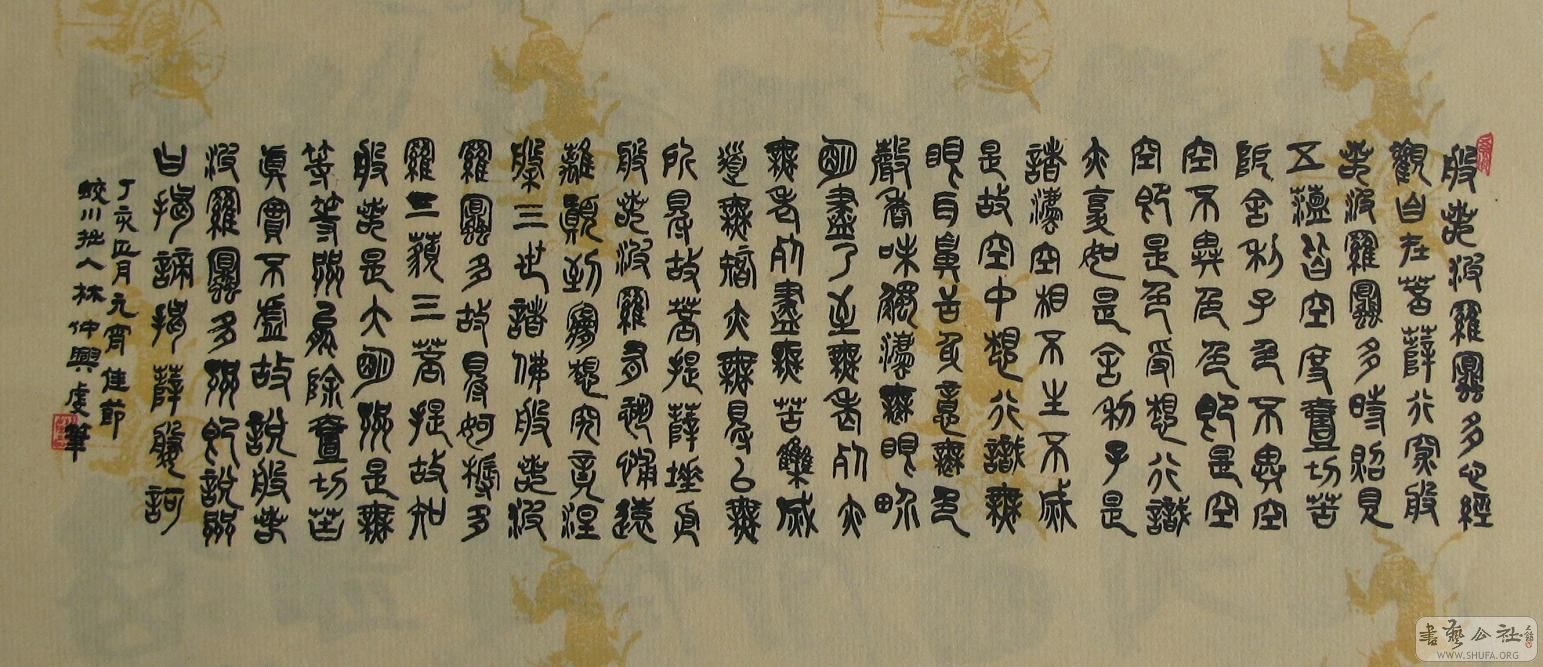 般若波羅蜜多心經
觀自在菩薩行深般
若波羅蜜多時照見
五蘊皆空度壹切苦
厄舍利子色不異空
空不異色色即是空
空即是色受想行識
亦復如是舍利子是
諸法空相不生不滅
是故空中想行識無
眼耳鼻舌身意無色
聲香味觸法無眼界
明盡乃至無老死亦
無老死盡無苦集滅
道無智亦無得以無
所得故菩提薩埵
般若波羅有恐怖遠
離顛倒夢想究竟涅
槃三世諸佛般若波
羅蜜多故得阿耨多
羅三藐三菩提故知
般若是大明咒是無
等等咒能除壹切苦
真實不虛故說般若
波羅蜜多咒即說咒
曰揭諦揭薩婆訶
丁亥正月元宵佳節
蛟川拙人林仲興虔筆
書藝公社
WWW.SHUFA.ORG